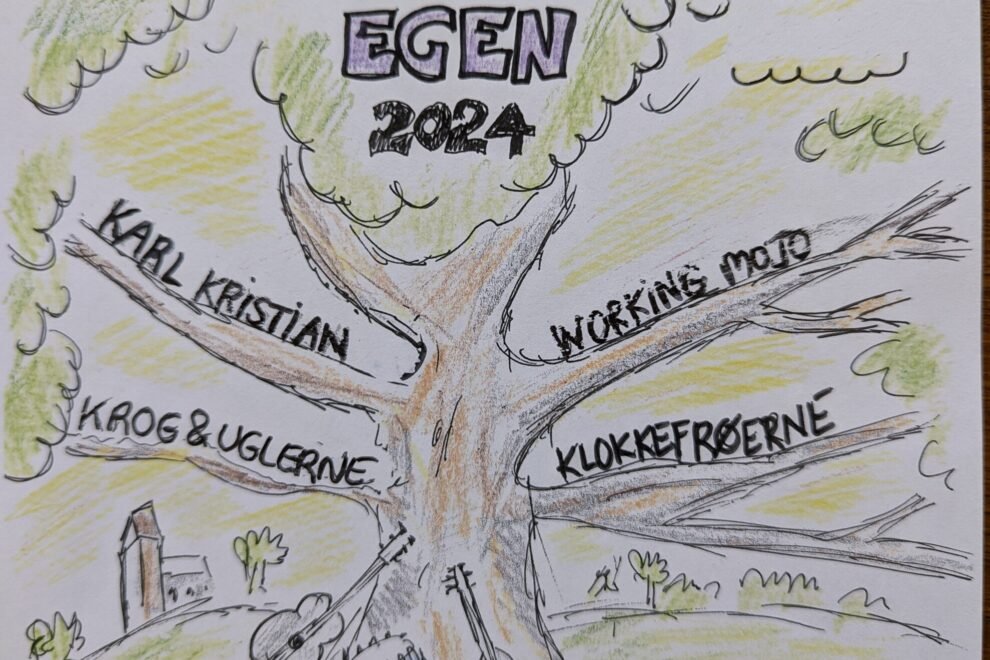 EGEN
2024
KARL KRISTIAN
WORKING MOJO
KROG & UGLERNE
KLOKKEFRØERNE